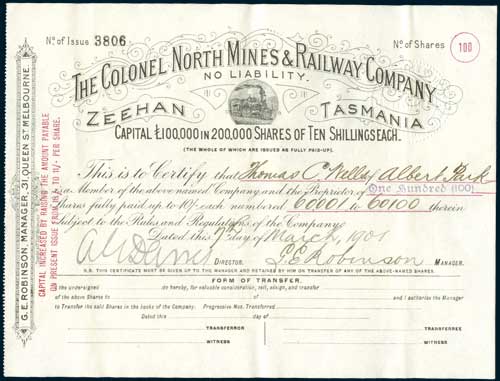 No. of Issue 3806
No. of Shares 100
THE COLONEL NORTH MINES & RAILWAY COMPANY
NO LIABILITY.
ZEEHAN TASMANIA
CAPITAL £100,000 IN 200,000 SHARES OF TEN SHILLINGS EACH.
(THE WHOLE OF WHICH ARE ISSUED AS FULLY PAID-UP).
This is to Certify that Thomas C Albert Park
is a Member of the above named Company, and the Proprietor of One Hundred (100)
shares fully paid up to 10/- each numbered 60001 to 60100 therein
subject to the Rules and Regulations of the Company.
Dated this 7th day of March, 1901
DIRECTOR. G. E. Robinson MANAGER.
N.B. THIS CERTIFICATE MUST BE GIVEN UP TO THE MANAGER AND RETAINED BY HIM ON TRANSFER OF ANY OF THE ABOVE-NAMED SHARES.
FORM OF TRANSFER.
the undersigned do hereby, for valuable consideration, sell, assign, and transfer
of the above Shares to of and I authorise the Manager
to Transfer the said Shares in the books of the Company. Progressive Nos. Transferred
Dated this day of
TRANSFEROR TRANSFEREE
WITNESS WITNESS
G. E. ROBINSON, MANAGER, 31 QUEEN ST MELBOURNE.
CAPITAL INCREASED BY RAISING THE AMOUNT PAYABLE
ON PRESENT ISSUE FROM 10/- TO 11/- PER SHARE.